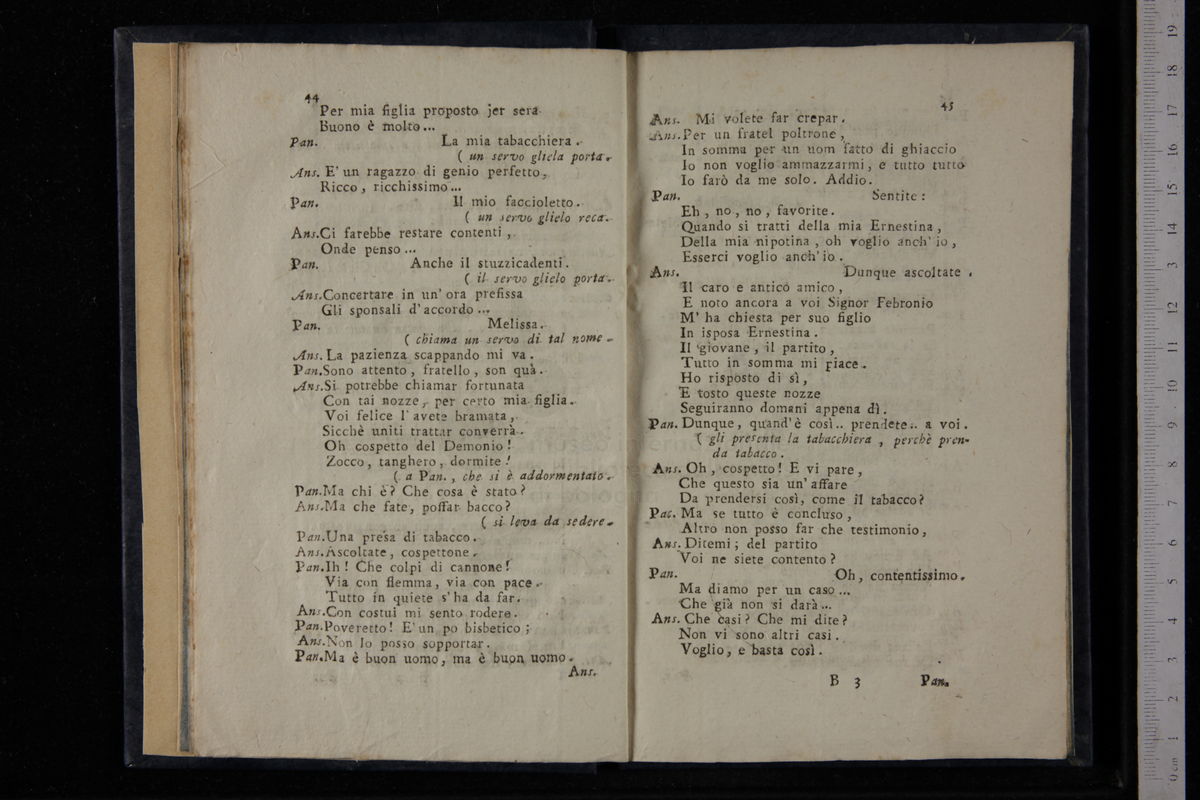 44
Per mia figlia proposto jer sera
Buono è molto...
Pan. La mia tabacchiera.
( un servo gliela porta.
Ans. E' un ragazzo di genio perfetto,
Ricco, ricchissimo...
Pan. Il mio faccioletto.
( un servo glielo reca.
Ans. Ci farebbe restare contenti,
Onde penso...
Pan. Anche il stuzzicadenti.
( il servo glielo porta.
Ans. Concertare in un' ora prefissa
Gli sponsali d'accordo...
Pan. Melissa.
( chiama un servo di tal nome.
Ans. La pazienza scappando mi va.
Pan. Sono attento, fratello, son quà.
Ans. Si potrebbe chiamar fortunata
Con tai nozze, per certo mia figlia.
Voi felice l'avete bramata,
Sicchè uniti trattar converrà.
Oh cospetto del Demonio!
Zocco, tanghero, dormite!
( a Pan., che si è addormentato.
Pan. Ma chi è? Che cosa è stato?
Ans. Ma che fate, poffar bacco?
( si leva da sedere.
Pan. Una presa di tabacco.
Ans. Ascoltate, cospettone.
Pan. Ih! Che colpi di cannone!
Via con flemma, via con pace.
Tutto in quiete s'ha da far.
Ans. Con costui mi sento rodere.
Pan. Poveretto! E' un po bisbetico;
Ans. Non lo posso sopportar.
Pan. Ma è buon uomo, ma è buon uomo.
Ans.
45
Ans. Mi volete far crepar.
Ans. Per un fratel poltrone,
In somma per un uom fatto di ghiaccio
Io non voglio ammazzarmi, e tutto tutto
Io farò da me solo. Addio.
Pan. Sentite:
Eh, no, no, favorite.
Quando si tratti della mia Ernestina,
Della mia nipotina, oh voglio anch' io,
Esserci voglio anch' io.
Ans. Dunque ascoltate.
Il caro e antico amico,
E noto ancora a voi Signor Febronio
M' ha chiesta per suo figlio
In isposa Ernestina.
Il giovane, il partito,
Tutto in somma mi piace.
Ho risposto di sì,
E tosto queste nozze
Seguiranno domani appena dì.
Pan. Dunque, quand'è così.. prendete.. a voi.
( gli presenta la tabacchiera, perchè pren-
da tabacco.
Ans. Oh, cospetto! E vi pare,
Che questo sia un' affare
Da prendersi così, come il tabacco?
Pac. Ma se tutto è concluso,
Altro non posso far che testimonio,
Ans. Ditemi; del partito
Voi ne siete contento?
Pan. Oh, contentissimo.
Ma diamo per un caso...
Che già non si darà...
Ans. Che casi? Che mi dite?
Non vi sono altri casi.
Voglio, e basta così.
B 3 Pan.
0 cm 1 2 3 4 5 6 7 8 9 10 11 12 13 14 15 16 17 18 19